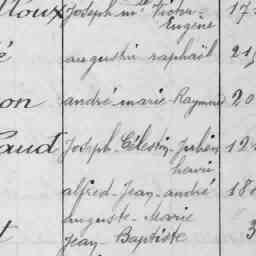 Joseph m^el Victor- 17
Eugène
augustin raphaël 21
on andré marie-Raymond 20
aud Joseph-Célestin-Julien 12
henri
alfred-Jean-andré 18
auguste-Marie
t Jean-Baptiste 3